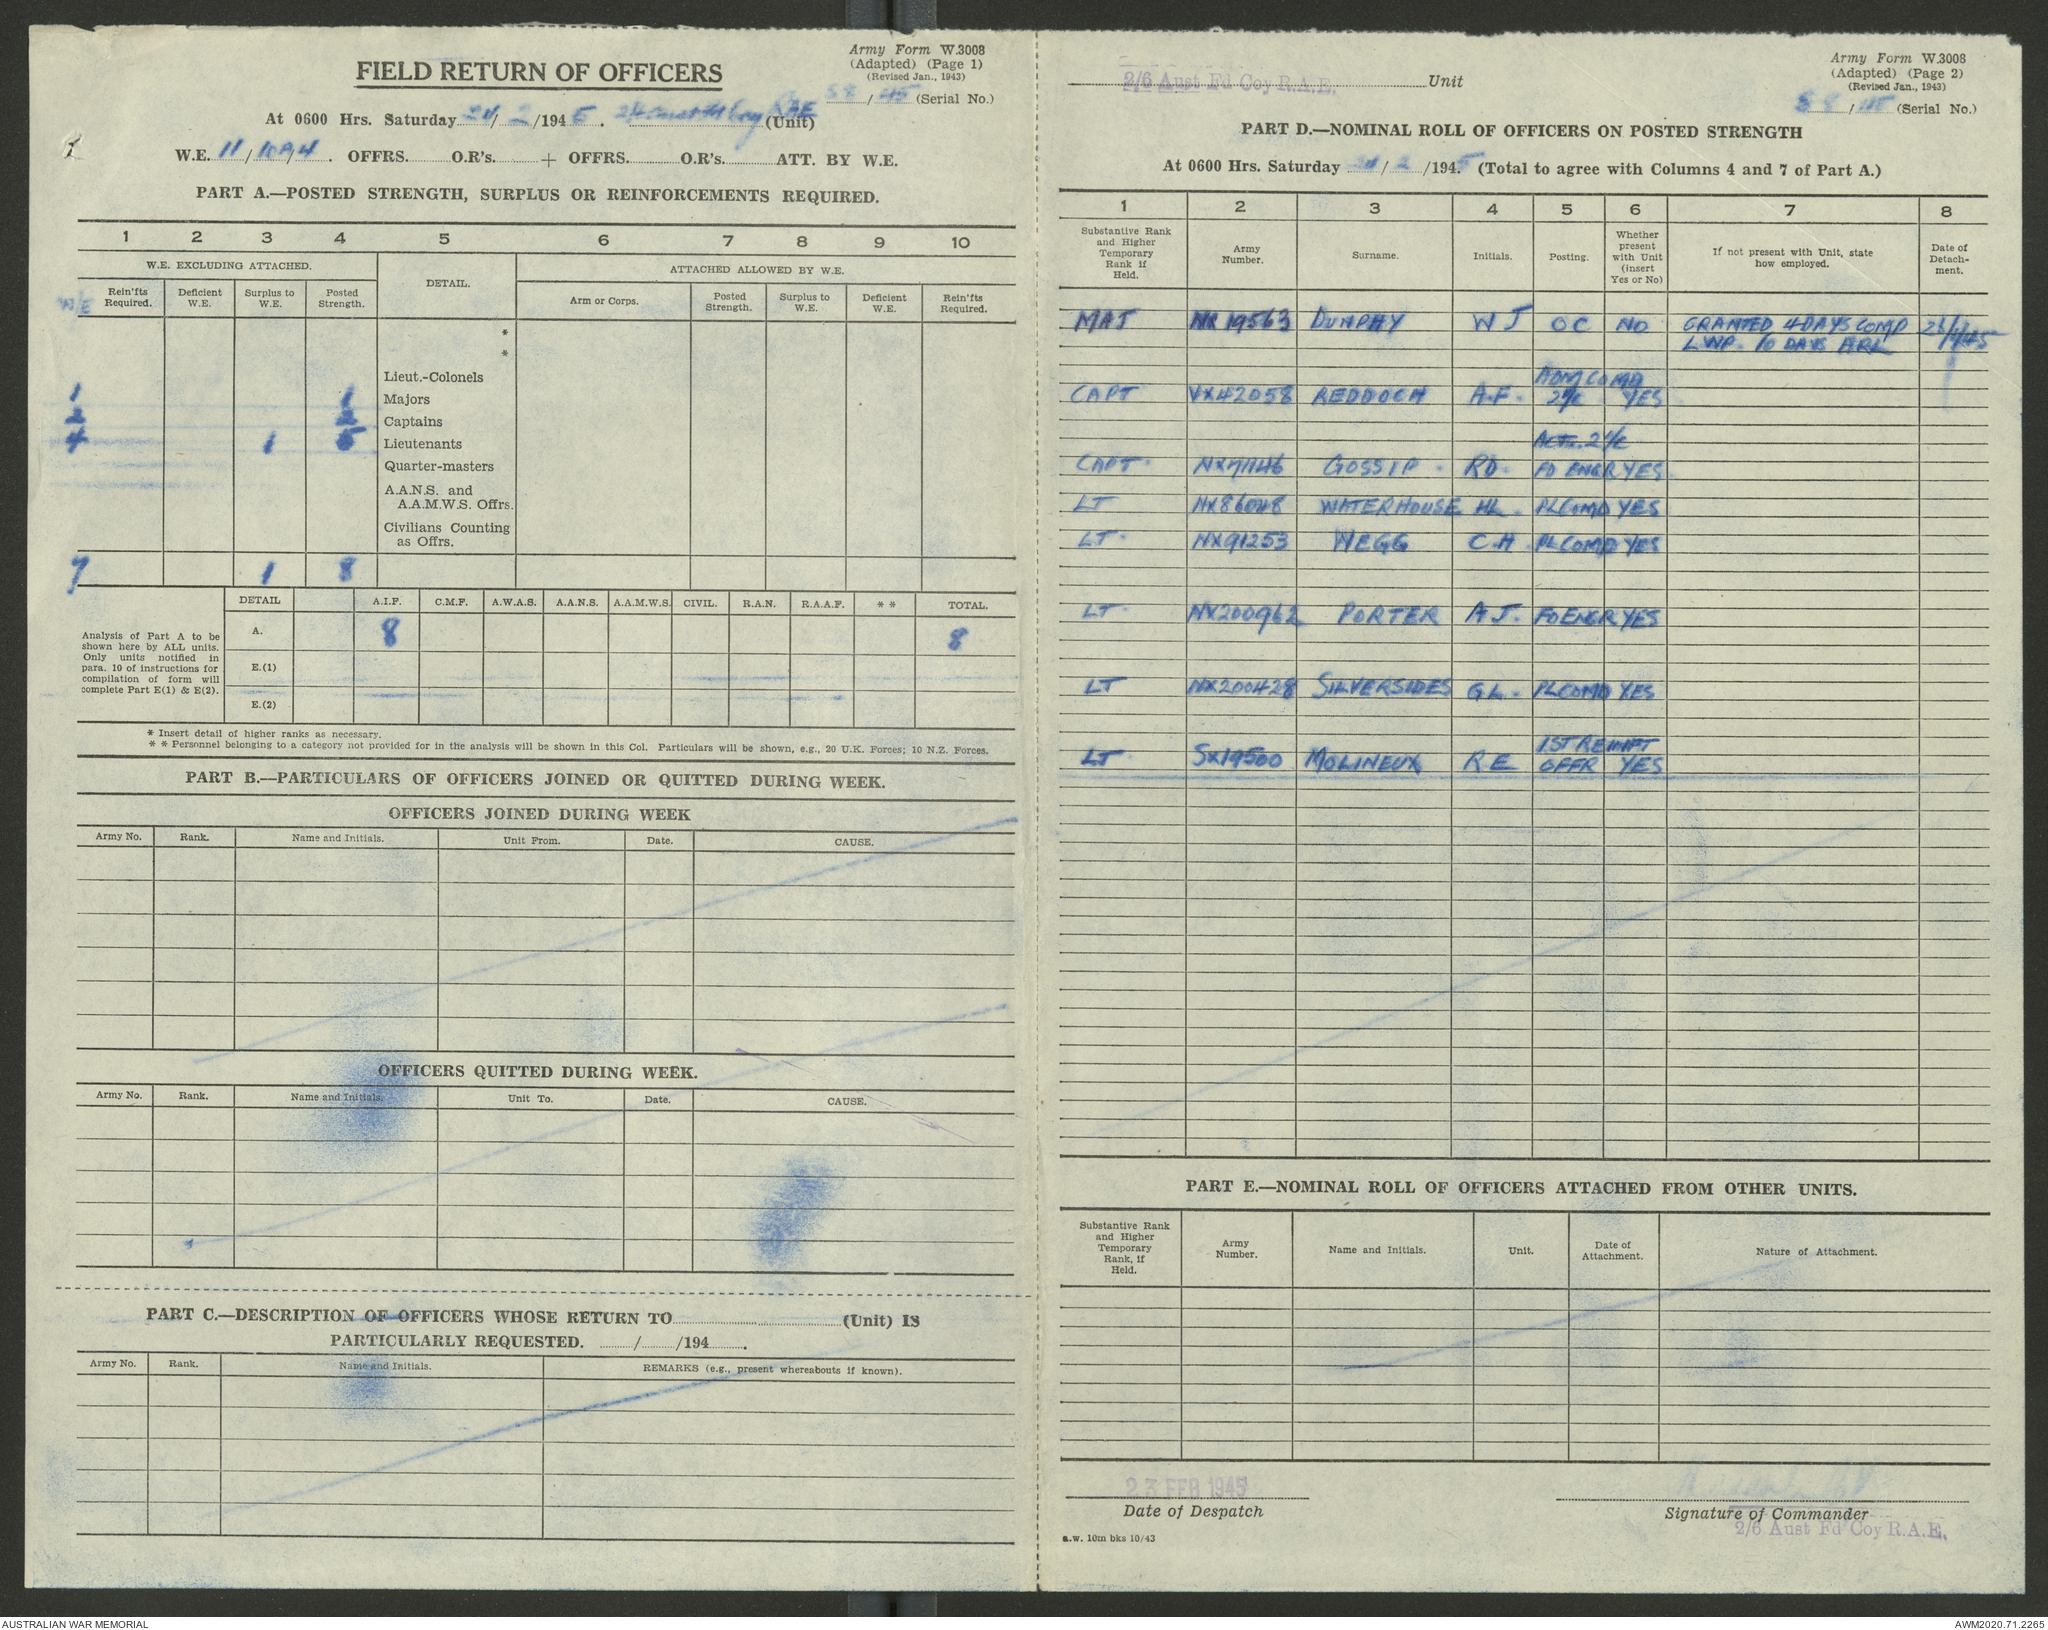 Army Form W.3008
(Adapted) (Page 1)
(Revised Jan., 1943)
FIELD RETURN OF OFFICERS
58/45 (Serial No.)
At 0600 Hrs. Saturday 24/2/1945. 2/6 Aust Fd Coy RAE (Unit)
W.E. 11/ OFFRS. O.R's. + OFFRS. O.R's. ATT. BY W.E.
PART A.—POSTED STRENGTH, SURPLUS OR REINFORCEMENTS REQUIRED.
1 2 3 4 5 6 7 8 9 10
W.E. EXCLUDING ATTACHED. DETAIL. ATTACHED ALLOWED BY W.E.
W/E Rein'fts Required. Deficient W.E. Surplus to W.E. Posted Strength. Arm or Corps. Posted Strength. Surplus to W.E. Deficient W.E. Rein'fts Required.
*
*
Lieut.-Colonels
1 1 Majors
2 2 Captains
4 1 5 Lieutenants
Quarter-masters
A.A.N.S. and
A.A.M.W.S. Offrs.
Civilians Counting
as Offrs.
7 1 8
DETAIL A.I.F. C.M.F. A.W.A.S. A.A.N.S. A.A.M.W.S. CIVIL. R.A.N. R.A.A.F. * * TOTAL.
Analysis of Part A to be
shown here by ALL units.
Only units notified in
para. 10 of instructions for
compilation of form will
complete Part E(1) & E(2).
A. 8 8
E.(1)
E.(2)
* Insert detail of higher ranks as necessary.
* * Personnel belonging to a category not provided for in the analysis will be shown in this Col. Particulars will be shown, e.g., 20 U.K. Forces; 10 N.Z. Forces.
PART B.—PARTICULARS OF OFFICERS JOINED OR QUITTED DURING WEEK.
OFFICERS JOINED DURING WEEK
Army No. Rank. Name and Initials. Unit From. Date. CAUSE.
OFFICERS QUITTED DURING WEEK.
Army No. Rank. Name and Initials. Unit To. Date. CAUSE.
PART C.—DESCRIPTION OF OFFICERS WHOSE RETURN TO (Unit) IS
PARTICULARLY REQUESTED. / /194 .
Army No. Rank. Name and Initials. REMARKS (e.g., present whereabouts if known).
Army Form W.3008
(Adapted) (Page 2)
(Revised Jan., 1943)
2/6 Aust Fd Coy R.A.E. Unit
58/45 (Serial No.)
PART D.—NOMINAL ROLL OF OFFICERS ON POSTED STRENGTH
At 0600 Hrs. Saturday 24/2/1945 (Total to agree with Columns 4 and 7 of Part A.)
1 2 3 4 5 6 7 8
Substantive Rank and Higher Temporary Rank if Held. Army Number. Surname. Initials. Posting. Whether present with Unit (insert Yes or No) If not present with Unit, state how employed. Date of Detachment.
MAJ NX19563 DUNPHY W J OC NO GRANTED 4 DAYS COMP
LWP. 10 DAYS ARL
ADM COMD
CAPT VX42058 REDDOCH A.F. 2i/c YES
Act. 2i/c
CAPT. GOSSIP. RD. FD ENGR YES
LT NX86048 WATERHOUSE HL. PLCOMD YES
LT. NX91253 WEGG C.H PLCOMD YES
LT. NX200962 PORTER A J. FD ENGR YES
LT NX200428 SILVERSIDES G L. PLCOMD YES
1ST REINFT
LT SX19500 MOLINEUX R E OFFR YES
PART E.—NOMINAL ROLL OF OFFICERS ATTACHED FROM OTHER UNITS.
Substantive Rank and Higher Temporary Rank, if Held. Army Number. Name and Initials. Unit. Date of Attachment. Nature of Attachment.
23 FEB 1945
Date of Despatch
Signature of Commander
2/6 Aust Fd Coy R.A.E.
a.w. 10m bks 10/43
AUSTRALIAN WAR MEMORIAL
AWM2020.71.2265